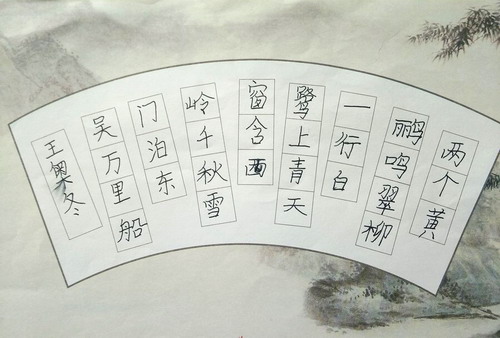 两个黄
鹂鸣翠柳
一行白
鹭上青天
窗含西
岭千秋雪
门泊东
吴万里船
王奥冬